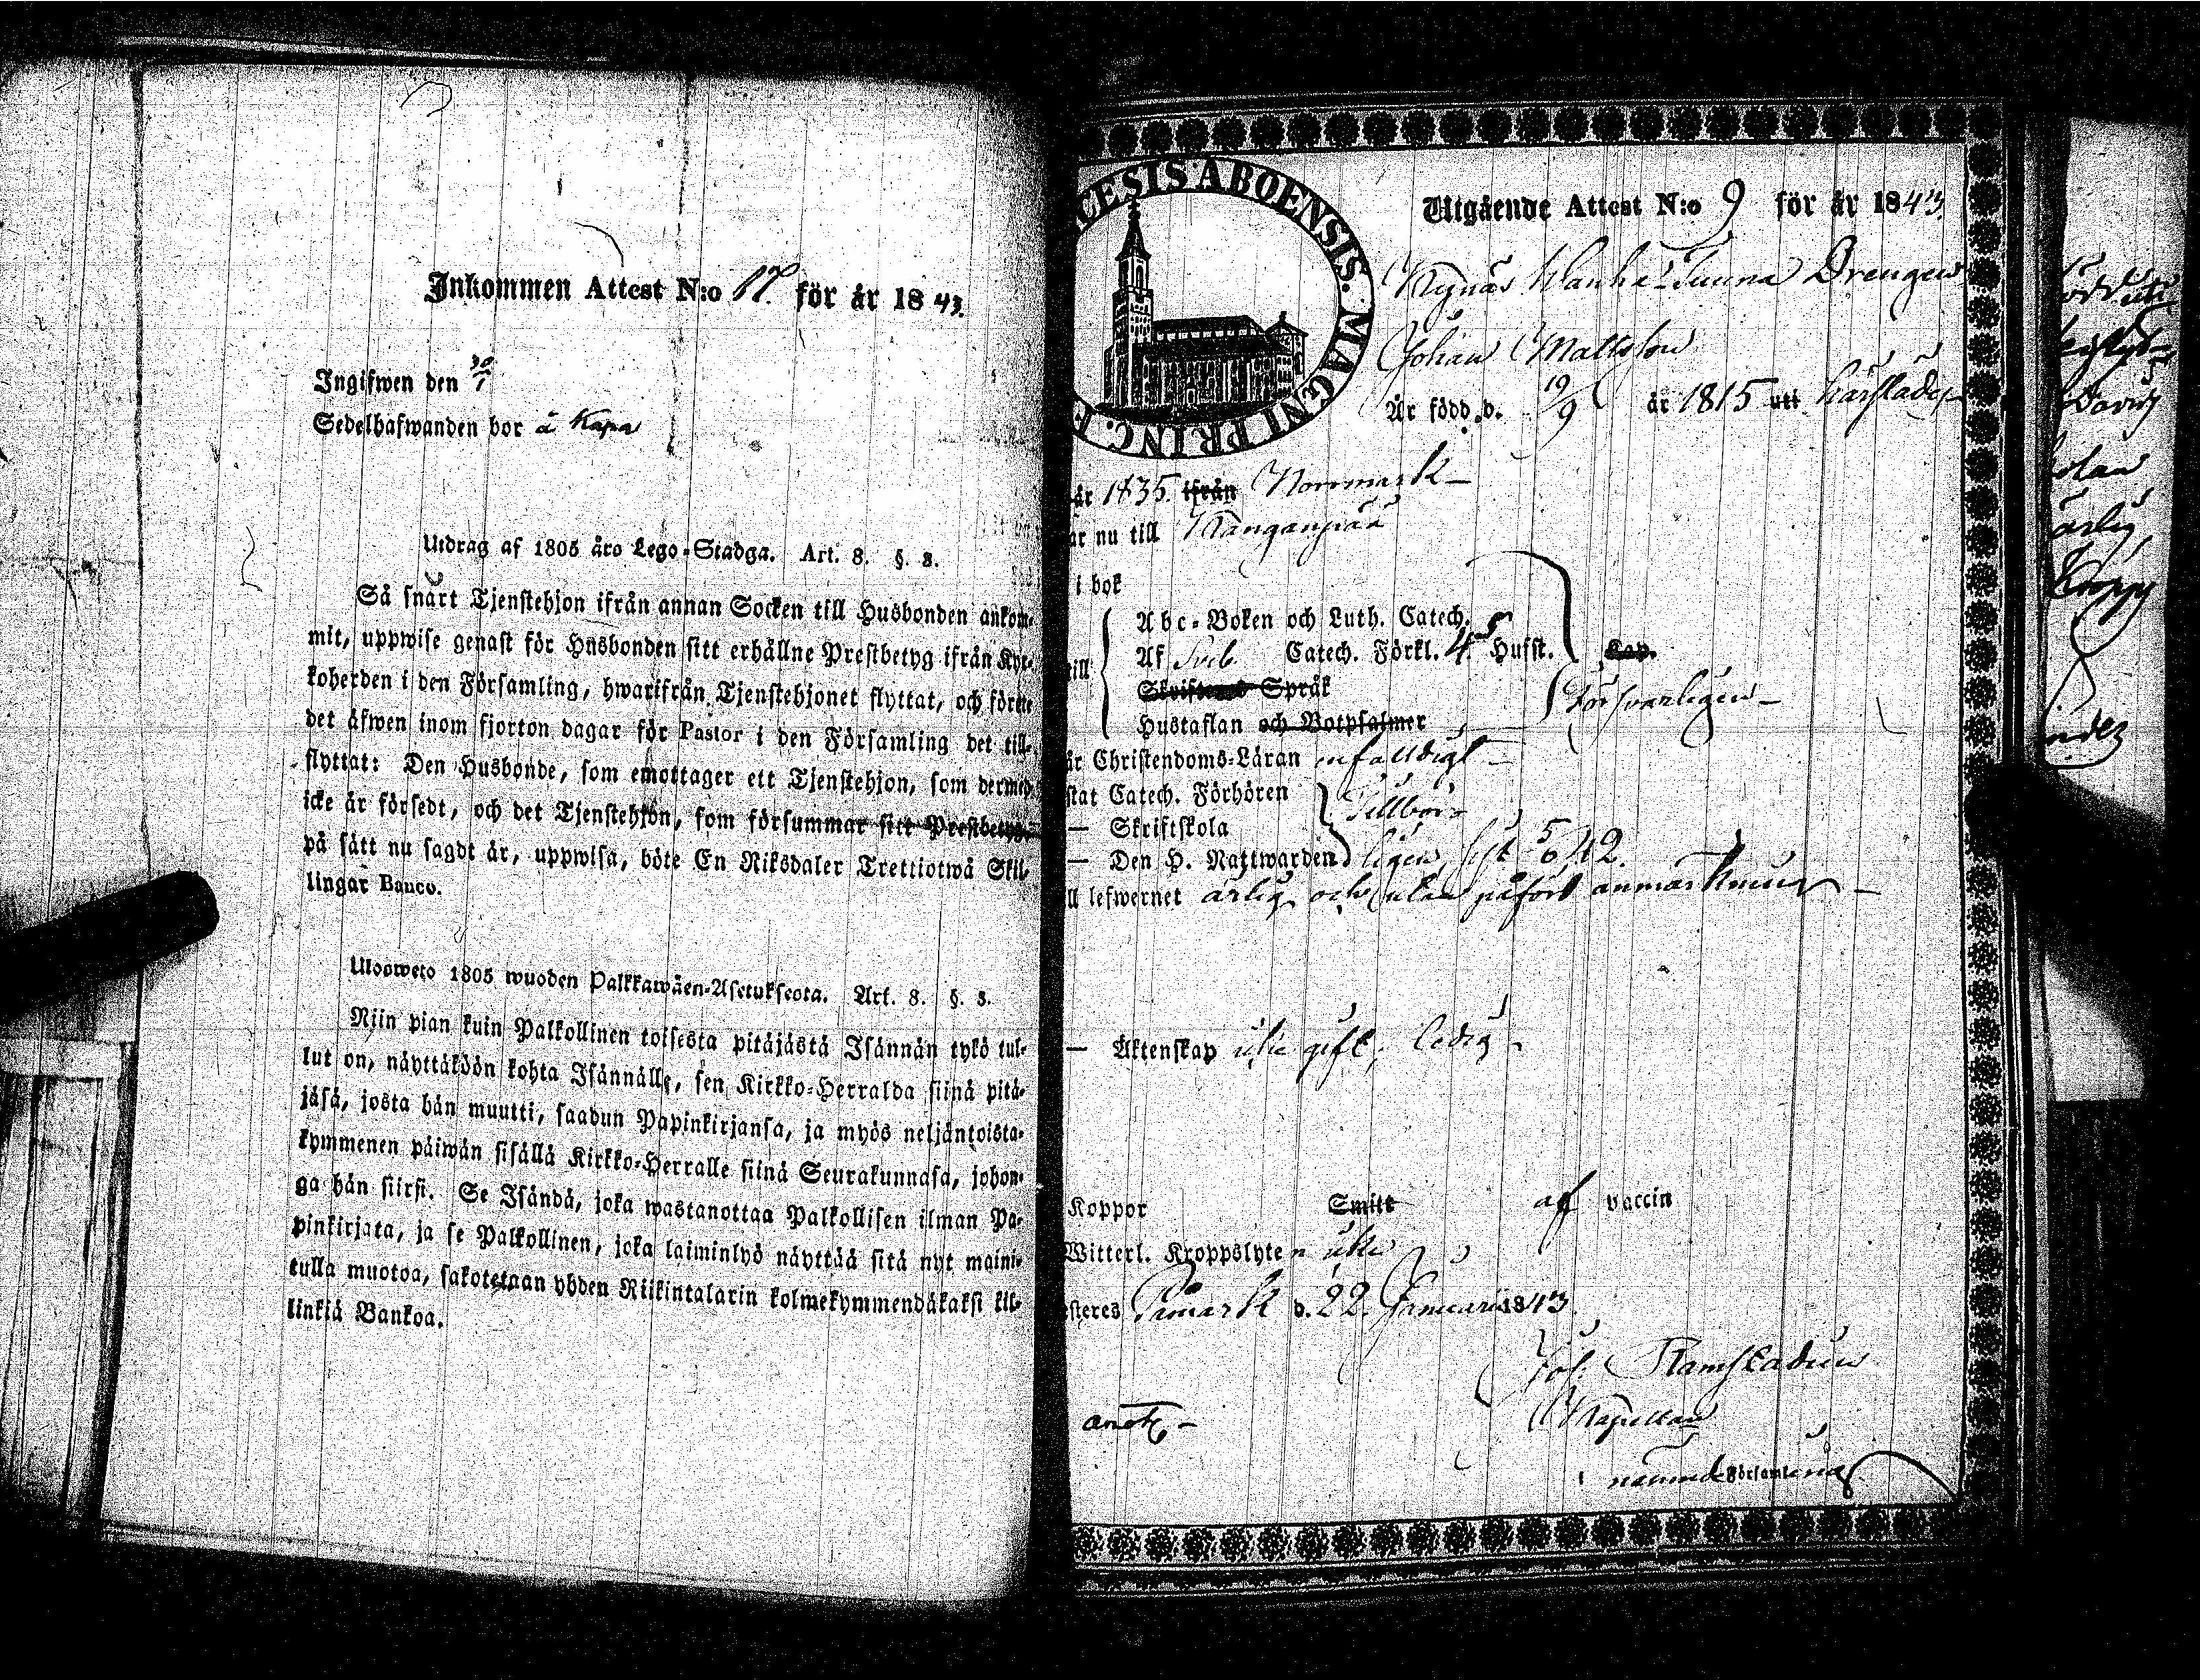 Inkommen Attest N:o 17. för år 1843.
Ingifwen den 30/1
Sedelhafwanden bor å Kapa
Utdrag af 1805 års Lego-Stadga. Art. 8. §. 3.
Så snart Tjenstehjon ifrån annan Socken till Husbonden ankom-
mit, uppwise genast för Husbonden sitt erhållne Prestbetyg ifrån Kyr-
koherden i den Församling, hwarifrån Tjenstehjonet flyttat, och förete
det äfwen inom fjorton dagar för Pastor i den Församling det till-
flyttat: Den Husbonde, som emottager ett Tjenstehjon, som dermed
icke är försedt, och det Tjenstehjon, som försummar sitt Prestbetyg,
på sätt nu sagdt är, uppwisa, böte En Riksdaler Trettiotwå Skil-
lingar Banco.
Ulosweto 1805 wuoden Palkkawäen-Asetuksesta. Art. 8. §. 3.
Niin pian kuin Palkollinen toisesta pitäjästä Isännän tykö tul-
lut on, näyttäköön kohta Isännälle, sen Kirkko-Herralda siinä pitä-
jäsä, josta hän muutti, saadun Papinkirjansa, ja myös neljäntoista-
kymmenen päiwän sisällä Kirkko-Herralle siinä Seurakunnasa, johon-
ga hän siirsi. Se Isändä, joka wastanottaa Palkollisen ilman Pa-
pinkirjata, ja se Palkollinen, joka laiminlyö näyttää sitä nyt maini-
tulla muotoa, sakotetaan yhden Riikintalarin kolmekymmendäkaksi kil-
linkiä Bankoa.
CESIS ABOENSIS. MAGNI PRINC. F
Utgående Attest N:o 9 för år 1843.
Kynäs Wanha Juuna Drengen
Johan Mattsson
Är född d. 19/9 år 1815 utt härstädes
år 1835. ifrån Norrmark
ar nu till Kanganpää
i bok
Abc-Boken och Luth. Catech.
till Af Sveb Catech. Förkl. 4. 5 Hufst. Cap.
Skriftenes Språk Försvarligen
Hustaflan och Botpsalmer
är Christendoms-Läran enfaldigt
stat Catech. Förhören
— Skriftskola Tillbör-
— Den H. Nattwarden ligen, sist 5/6 42.
ll lefwernet ärlig och utan påförd anmärkning
— Äktenskap icke gift; ledig
Koppor Smitt af vaccin
Witterl. Kroppslyten icke
esteres Påmark d. 22. Januarii 1843
Joh. Ramstadius
Kapellan
i nämnde Församling